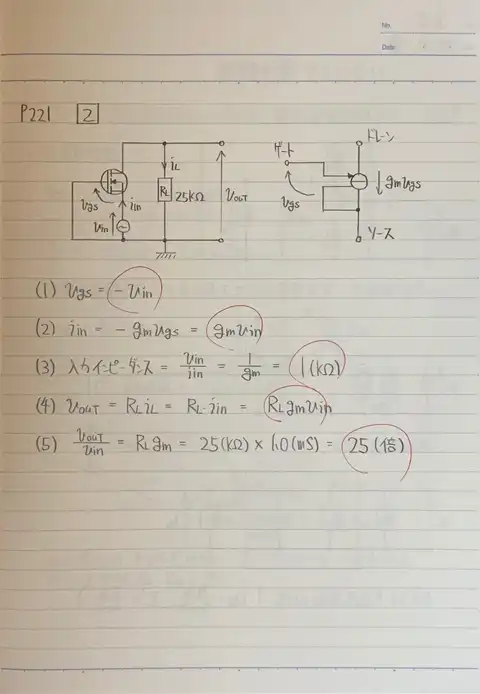 No.
Date
P221 2
iL
RL 25kΩ
vgs
iin
vin
vOUT
ゲート
ドレーン
vgs
↓gmvgs
ソース
(1) vgs = -vin
(2) iin = -gmvgs = gmvin
(3) 入力インピーダンス = vin/iin = 1/gm = 1(kΩ)
(4) vOUT = RLiL = RL・iin = RLgmvin
(5) vOUT/vin = RLgm = 25(kΩ) × 1.0(mS) = 25(倍)